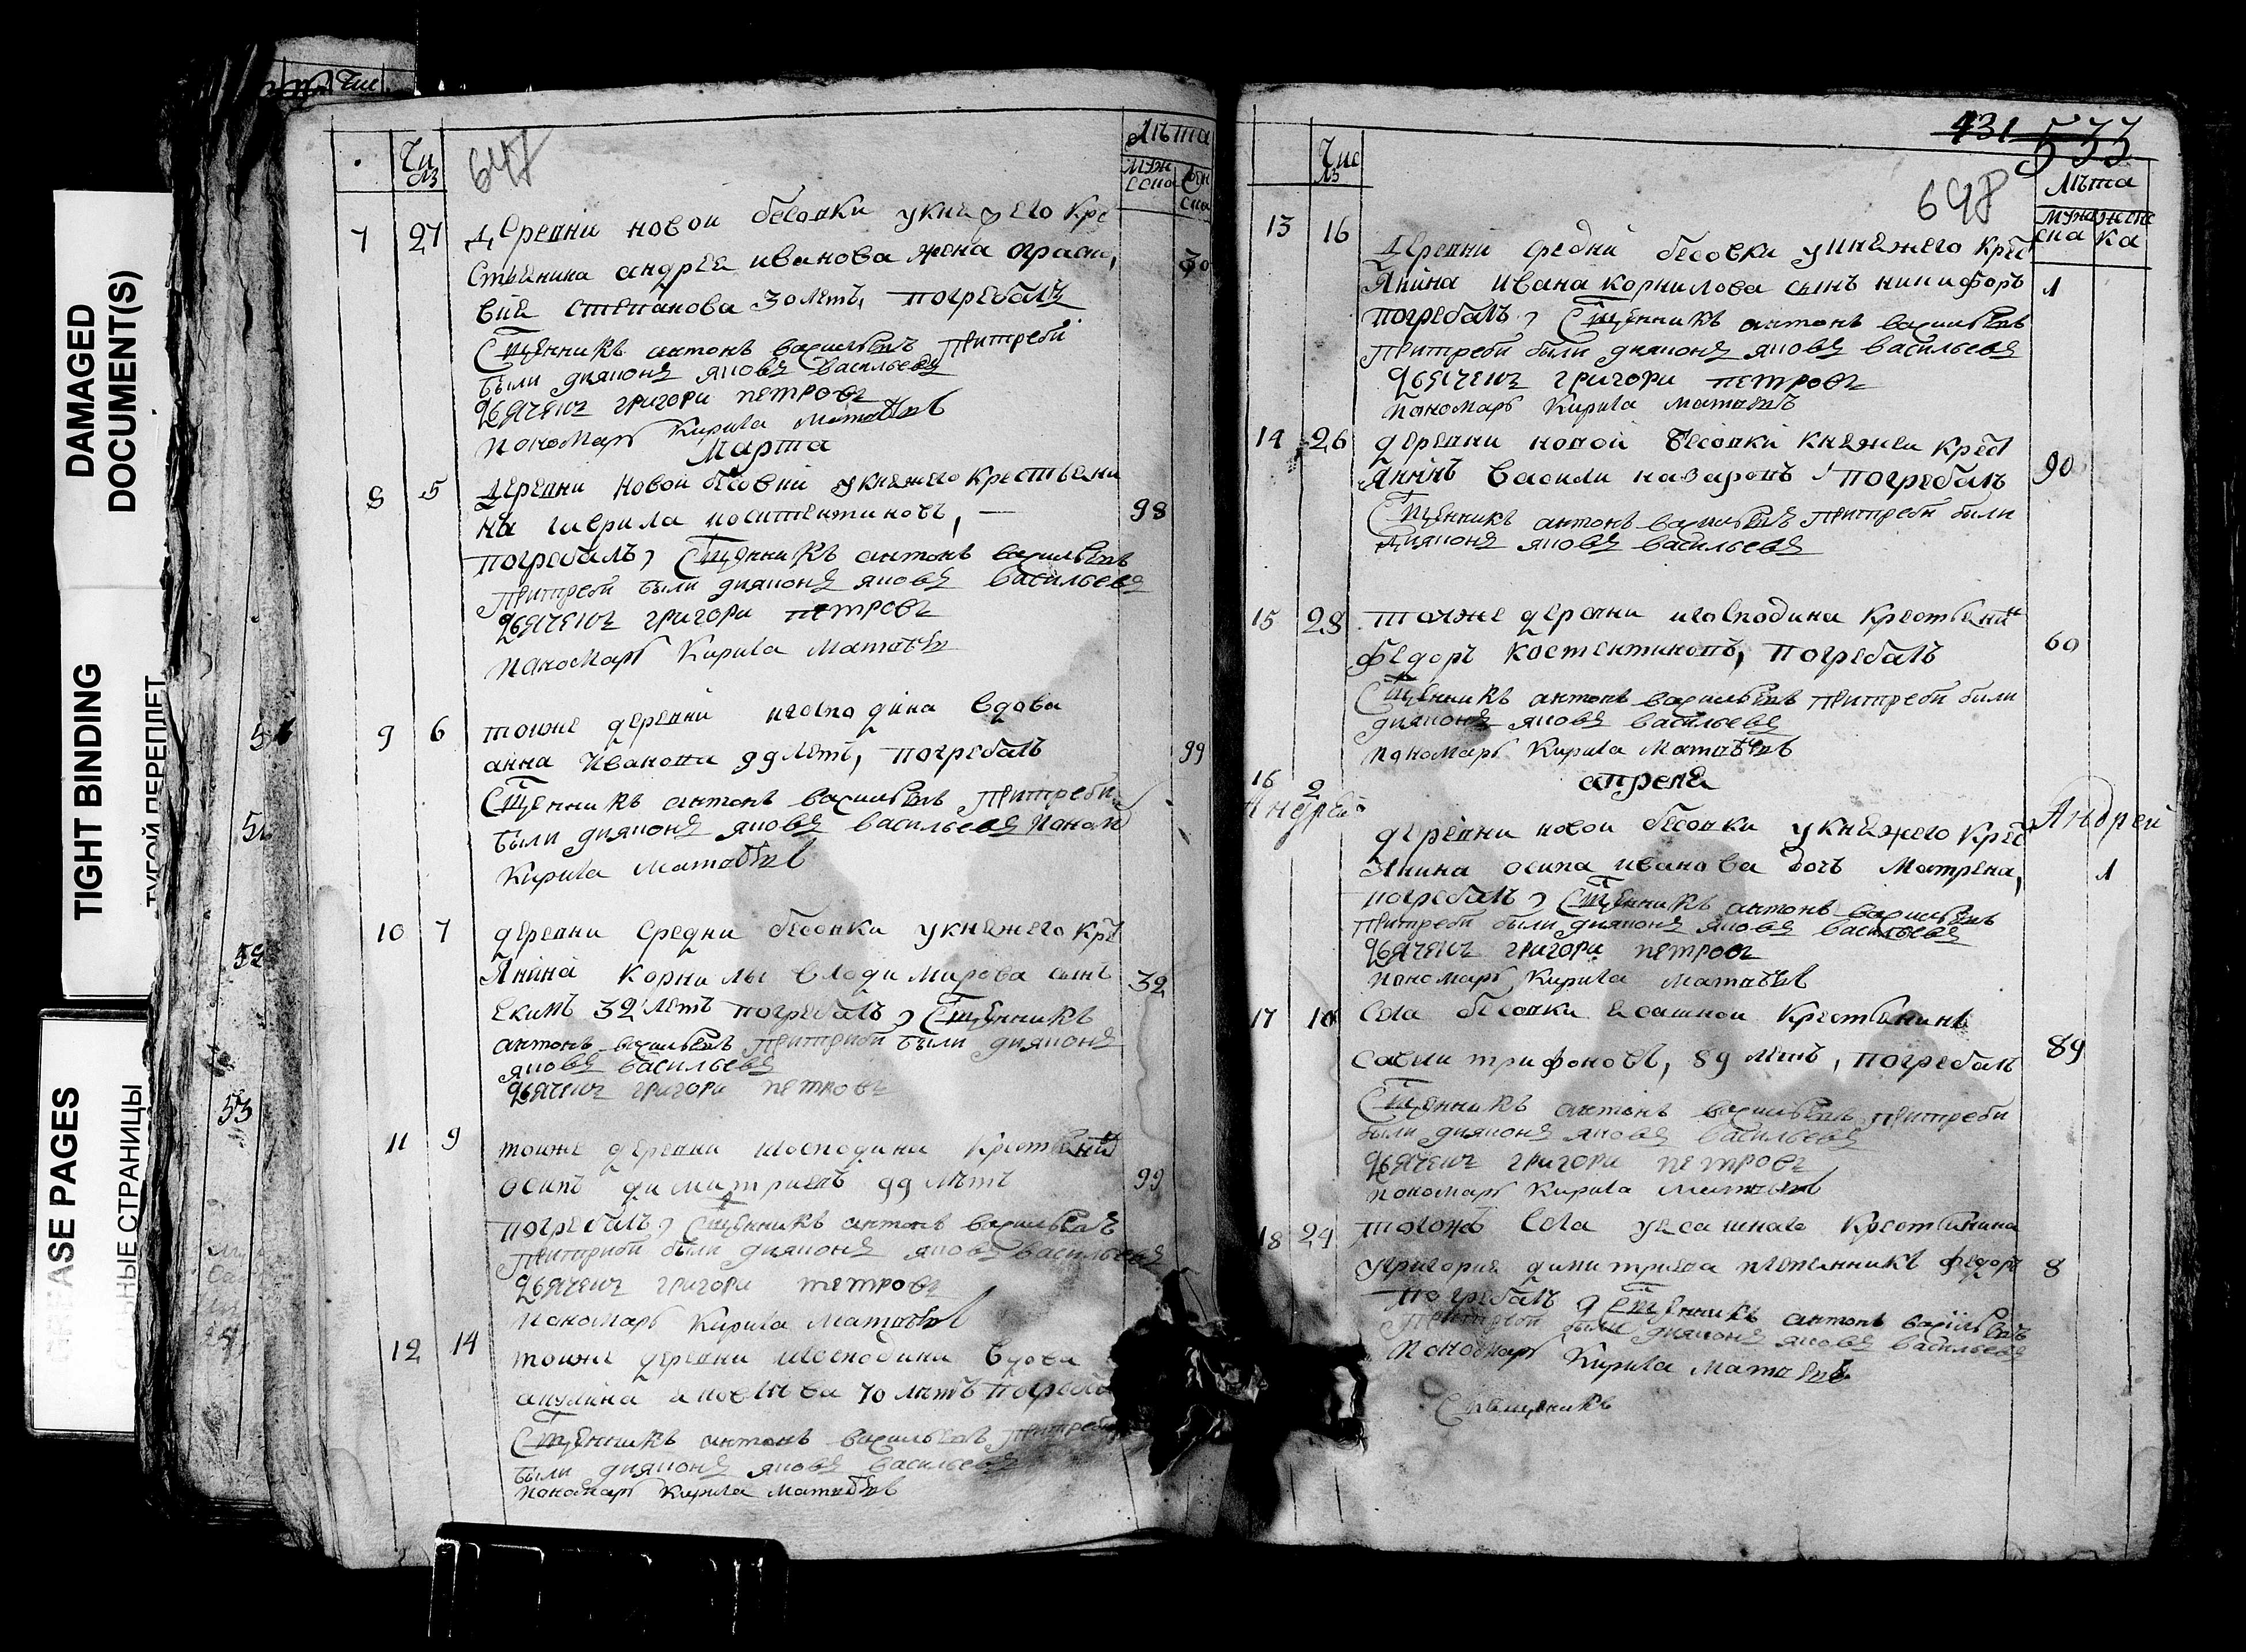 DAMAGED
DOCUMENT(S)
TIGHT BINDING
ТУГОЙ ПЕРЕПЛЕТ
ASE PAGES
НЫЕ СТРАНИЦЫ
Чис
Чи
лз
647
Лѣта
муж
ска
жен
ска
7 27 деревни новои бесовки укня жего кре
стьянина андрея иванова жена
вия степанова 30 летъ, погребалъ 30
Сщенникъ антонъ васильевъ притребѣ
были дияконъ яковъ васильевъ
дьячекъ григори петровъ
пономарь Кирила Матвѣевъ
Марта
8 5 деревни новои бесовки укняжего крестьяни
на гаврила костентиновъ, — 98
погребалъ, Сщенникъ антонъ васильевъ
притребѣ были дияконъ яковъ васильевъ
дьячекъ григори петровъ
пономарь Кирила Матвѣевъ
9 6 тояже деревни игосподина вдова
анна Иванова 99 летъ, погребалъ 99
Сщенникъ антонъ васильевъ притребѣ
были дияконъ яковъ васильевъ поном
Кирила Матвѣевъ
10 7 деревни средни бесовки укняжего кре
янина корнилы влодимирова сынъ
екимъ 32 летъ погребалъ, Сщенникъ 32
антонъ васильевъ притребѣ были дияконъ
яковъ васильевъ
дьячекъ григори петровъ
11 9 тояже деревни игосподина крестьяни
осипъ димитриевъ 99 летъ 99
погребалъ, Сщенникъ антонъ васильевъ
притребѣ были дияконъ яковъ васильевъ
дьячекъ григори петровъ
пономарь Кирила Матвѣевъ
12 14 тояже деревни игосподина вдова
акулина яковлева 70 летъ погреба
Сщенникъ антонъ васильевъ притребѣ
были дияконъ яковъ васильевъ
пономарь Кирила Матвѣевъ
431 533
Чис
лз
698
Лѣта
муже
ска
женс
ка
13 16 деревни средни бесовки укняжего крес
янина Ивана корнилова сынъ никифоръ 1
погребалъ, Сщенникъ антонъ васильевъ
притребѣ были дияконъ яковъ васильевъ
дьячекъ григори петровъ
пономарь Кирила Матвѣевъ
14 26 деревни новой бесовки княжеи крест
янинъ васили назаровъ погребалъ 90
Сщенникъ антонъ васильевъ притребѣ были
дияконъ яковъ васильевъ
15 28 тояже деревни игосподина крестьянин
федоръ костентиновъ, погребалъ 60
Сщенникъ антонъ васильевъ притребѣ были
дияконъ яковъ васильевъ
пономарь Кирила Матвѣевъ
апреля
16 2
Андрей
деревни новои бесовки укняжего крес Андрей
янина осипа иванова дочь Матрена, 1
погребалъ, Сщенникъ антонъ васильевъ
притребѣ были дияконъ яковъ васильевъ
дьячекъ григори петровъ
пономарь Кирила Матвѣевъ
17 10 села бесовки ясашнои крестьянинъ
савели трифоновъ, 89 летъ, погребалъ 89
Сщенникъ антонъ васильевъ притребѣ
были дияконъ яковъ васильевъ
дьячекъ григори петровъ
пономарь Кирила Матвѣевъ
18 24 тогожъ села уясашнаго крестьянина
угригория димитриева племенникъ федоръ 8
погребалъ Сщенникъ антонъ васильевъ
притребѣ были дияконъ яковъ васильевъ
пономарь Кирила Матвѣевъ
Священникъ